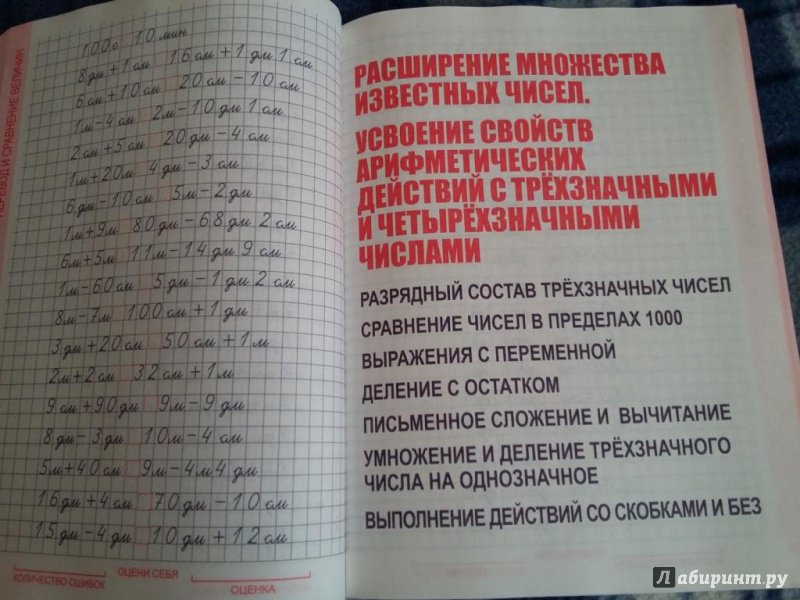 ПЕРЕВОД И СРАВНЕНИЕ ВЕЛИЧИН
100с 10 мин
8 дм + 1 см 16 см + 1 дм 1 см
6 см + 10 см 20 см − 10 см
1м − 4 см 2м − 10 дм 1 см
2 см + 5 см 20 дм − 4 см
1м + 20м 4 дм − 3 см
6 дм − 10 см 5м − 2 дм
1м + 9м 80 дм − 68 дм 2 см
6м + 5м 11м − 14 дм 9 см
1м − 60 см 5 дм − 1 дм 2 см
8м − 7м 100 см + 1 дм
3 дм + 20 см 50 см + 1м
2м + 2 см 32 см + 1м
9 см + 90 дм 9м − 9 дм
8 дм − 3 дм 10м − 4 см
5м + 40 см 9м − 4м 4 дм
16 дм + 4 см 70 дм − 10 см
15 дм − 4 дм 10 дм + 12 см
КОЛИЧЕСТВО ОШИБОК ОЦЕНИ СЕБЯ ОЦЕНКА
РАСШИРЕНИЕ МНОЖЕСТВА
ИЗВЕСТНЫХ ЧИСЕЛ.
УСВОЕНИЕ СВОЙСТВ
АРИФМЕТИЧЕСКИХ
ДЕЙСТВИЙ С ТРЁХЗНАЧНЫМИ
И ЧЕТЫРЁХЗНАЧНЫМИ
ЧИСЛАМИ
РАЗРЯДНЫЙ СОСТАВ ТРЁХЗНАЧНЫХ ЧИСЕЛ
СРАВНЕНИЕ ЧИСЕЛ В ПРЕДЕЛАХ 1000
ВЫРАЖЕНИЯ С ПЕРЕМЕННОЙ
ДЕЛЕНИЕ С ОСТАТКОМ
ПИСЬМЕННОЕ СЛОЖЕНИЕ И ВЫЧИТАНИЕ
УМНОЖЕНИЕ И ДЕЛЕНИЕ ТРЁХЗНАЧНОГО
ЧИСЛА НА ОДНОЗНАЧНОЕ
ВЫПОЛНЕНИЕ ДЕЙСТВИЙ СО СКОБКАМИ И БЕЗ
Лабиринт.ру